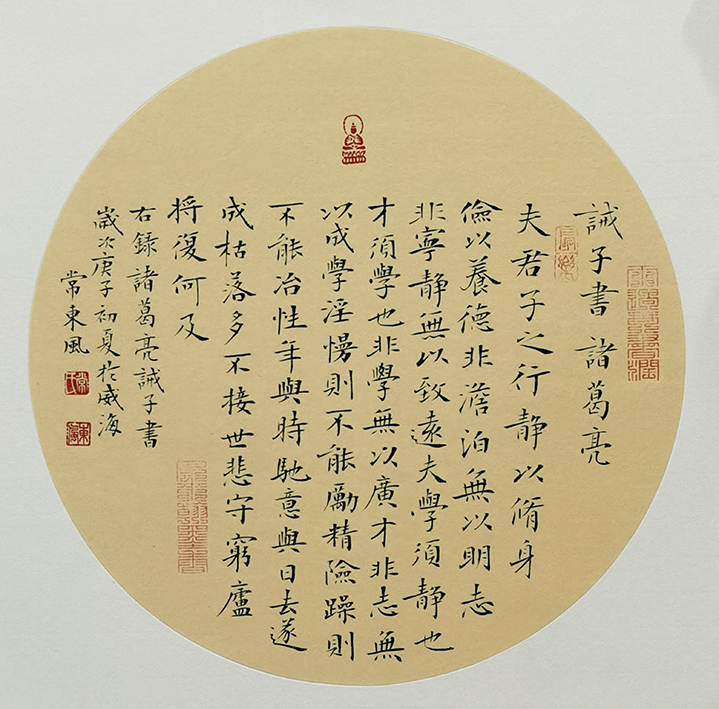 誡子書 諸葛亮
夫君子之行静以脩身
儉以養德非澹泊無以明志
非寧静無以致遠夫學須静也
才須學也非學無以廣才非志無
以成學淫慢則不能勵精險躁則
不能冶性年與時馳意與日去遂
成枯落多不接世悲守窮廬
将復何及
右録諸葛亮誡子書
歲次庚子初夏於威海
常東風